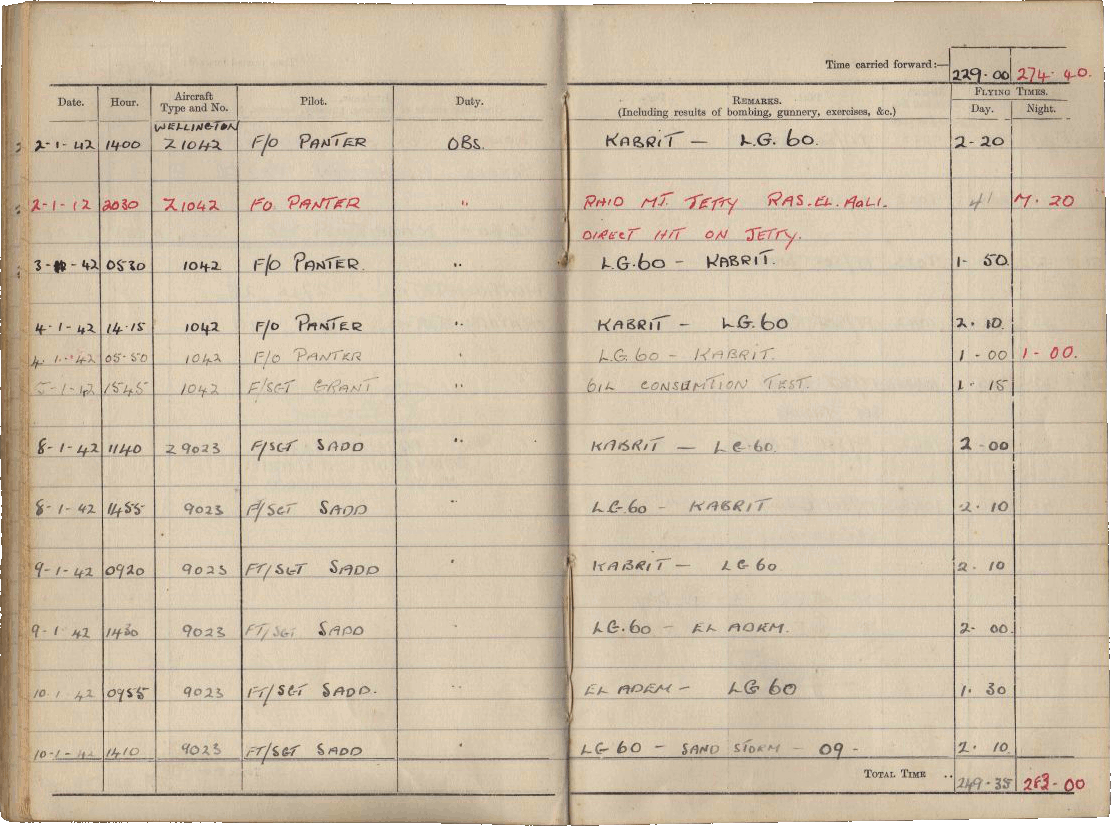 Time carried forward:— 229-00 274-40.
Date. Hour. Aircraft Type and No. Pilot. Duty. REMARKS. (Including results of bombing, gunnery, exercises, &c.) FLYING TIMES. Day. Night.
WELLINGTON
2-1-42 1400 Z1042 F/O PANTER OBS. KABRIT — L.G. 60. 2-20
2-1-12 2030 Z1042 FO PANTER " RAID MT. JETTY RAS.EL.AALI. 41 7.20
DIRECT HIT ON JETTY.
3-1-42 0530 1042 F/O PANTER. " L.G.60 - KABRIT. 1-50
4-1-42 14-15 1042 F/O PANTER " KABRIT — LG.60 2.10.
4-1-42 05-50 1042 F/O PANTER " L.G.60 - KABRIT. 1-00 1-00.
5-1-42 1545 1042 F/SGT GRANT " OIL CONSUMTION TEST. 1-15
8-1-42 1140 Z9023 F/SGT SADD " KABRIT — LG.60. 2-00
8-1-42 1455 9023 F/SGT SADD " LG.60 - KABRIT 2-10
9-1-42 0920 9023 FT/SGT SADD " KABRIT — LG 60 2-10
9-1-42 1430 9023 FT/SGT SADD LG.60 - EL ADEM. 2-00.
10-1-42 0955 9023 FT/SGT SADD. " EL ADEM — LG 60 1.30
10-1-42 1410 9023 FT/SGT SADD " LG 60 - SAND STORM - 09 - 2.10.
TOTAL TIME .. 249-35 283-00